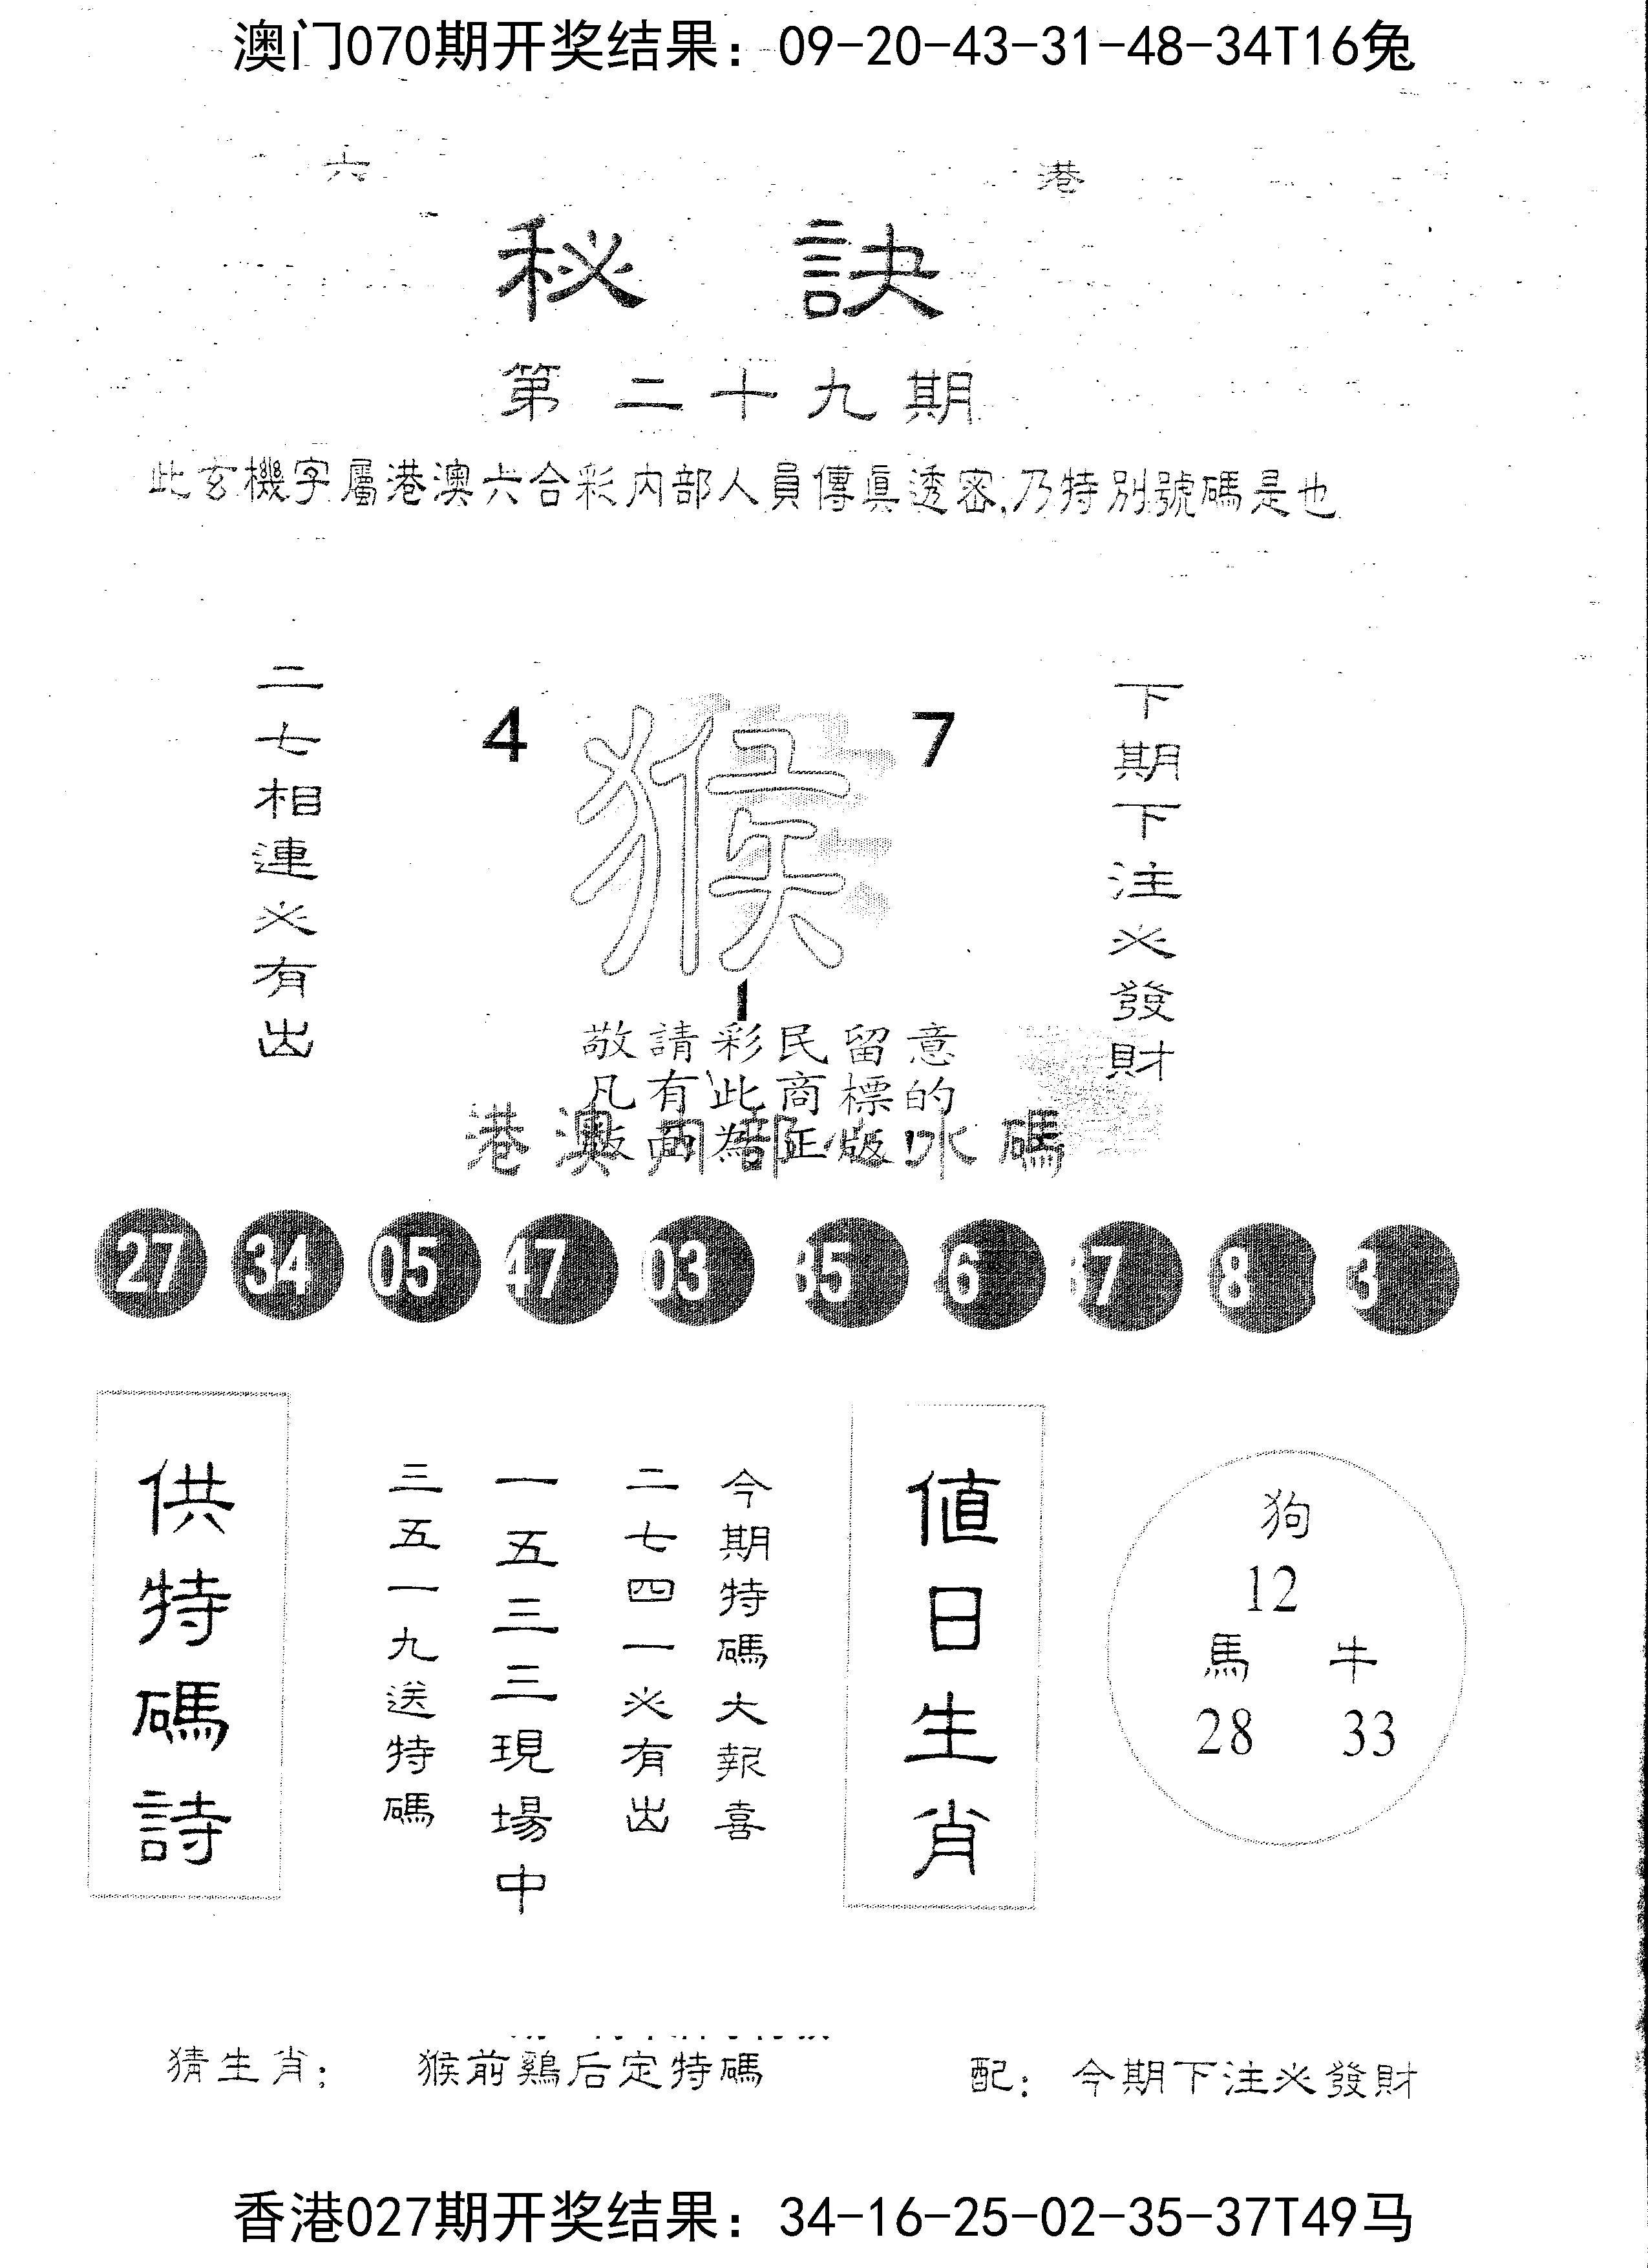 澳门070期开奖结果：09-20-43-31-48-34T16兔
六 港
秘 訣
第 二 十 九 期
此玄機字屬港澳六合彩内部人員傳真透密,乃特别號碼是也
二七相連必有出
4 猴 7
下期下注必發財
敬請彩民留意
凡有此商標的
為正版
港澳内部 水碼
27 34 05 47 03 35 6 7 8 3
供特碼詩
三五一九送特碼
一五三三現場中
二七四一必有出
今期特碼大報喜
值日生肖
狗
12
馬 牛
28 33
猜生肖: 猴前鷄后定特碼 配: 今期下注必發財
香港027期开奖结果：34-16-25-02-35-37T49马